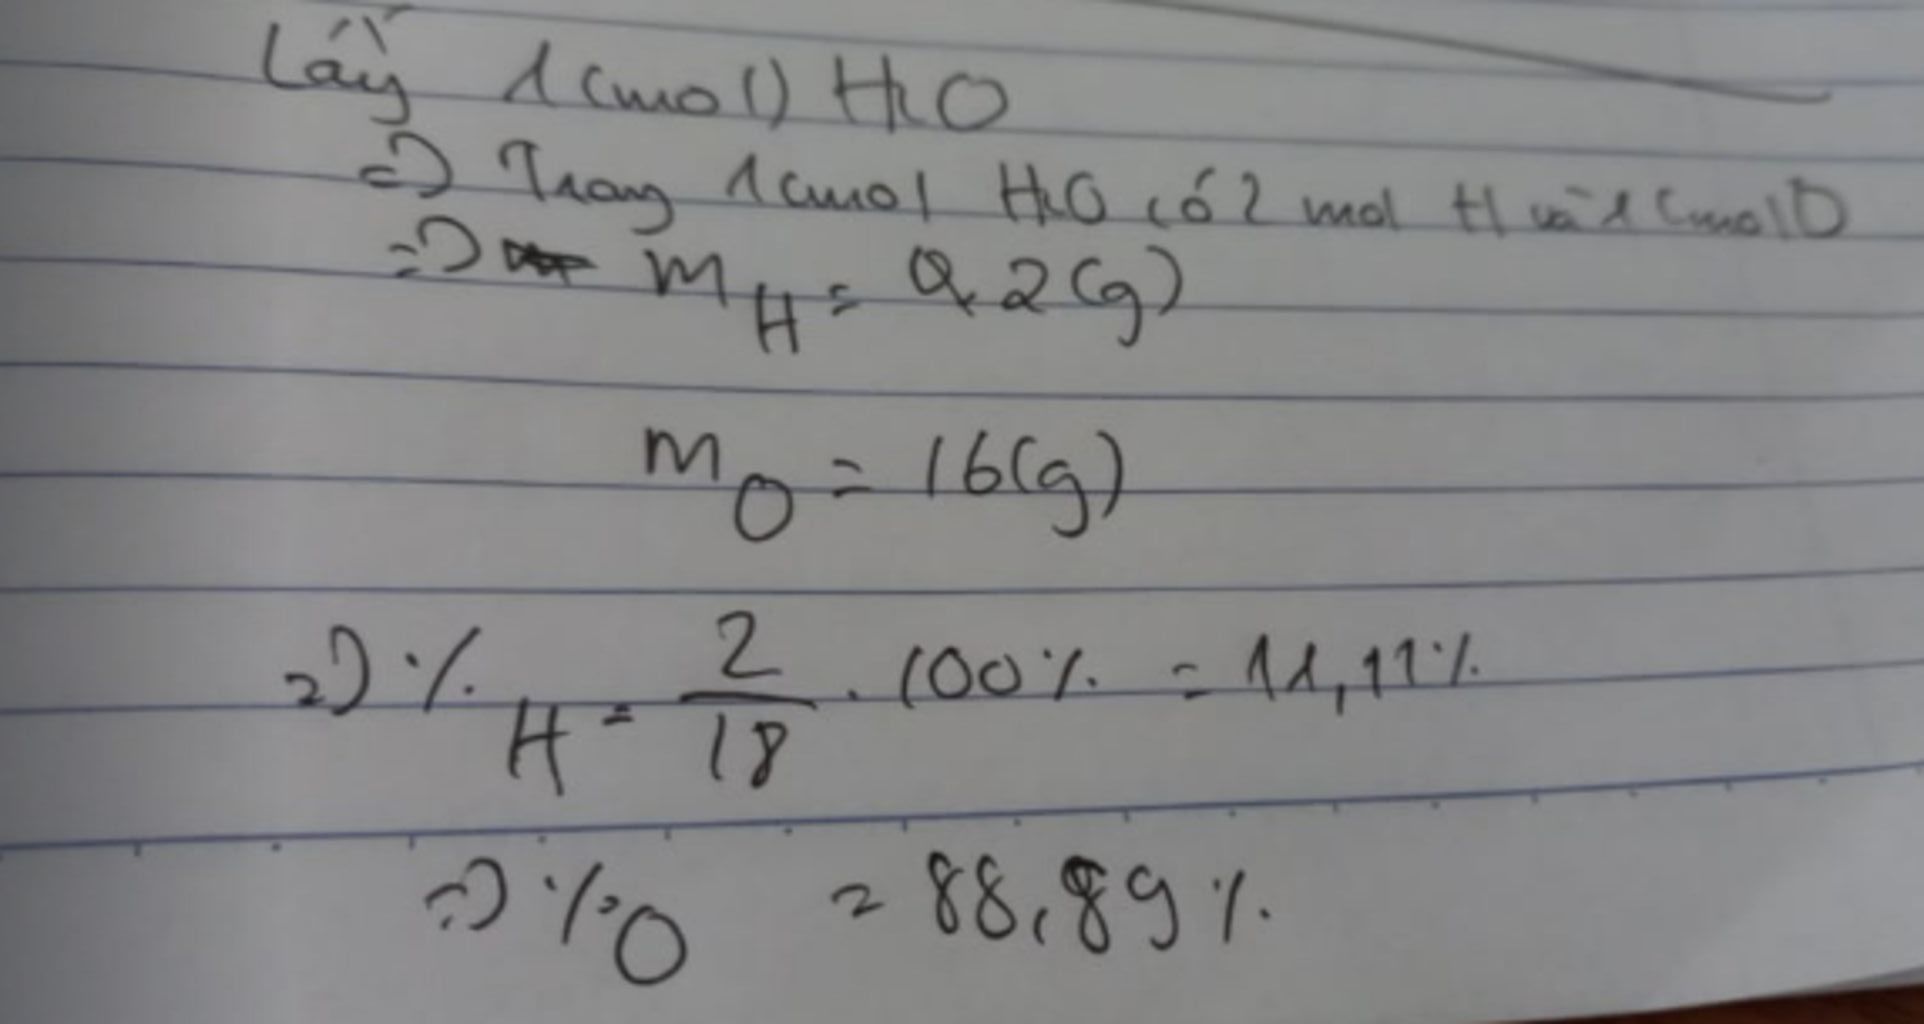 Lấy 1 (mol) H2O
=> Trong 1 (mol H2O có 2 mol H và 1 (mol O
=> mH = 2 (g)
mO = 16 (g)
=> %H = 2/18 . 100% = 11,11%
=> %O = 88,89%